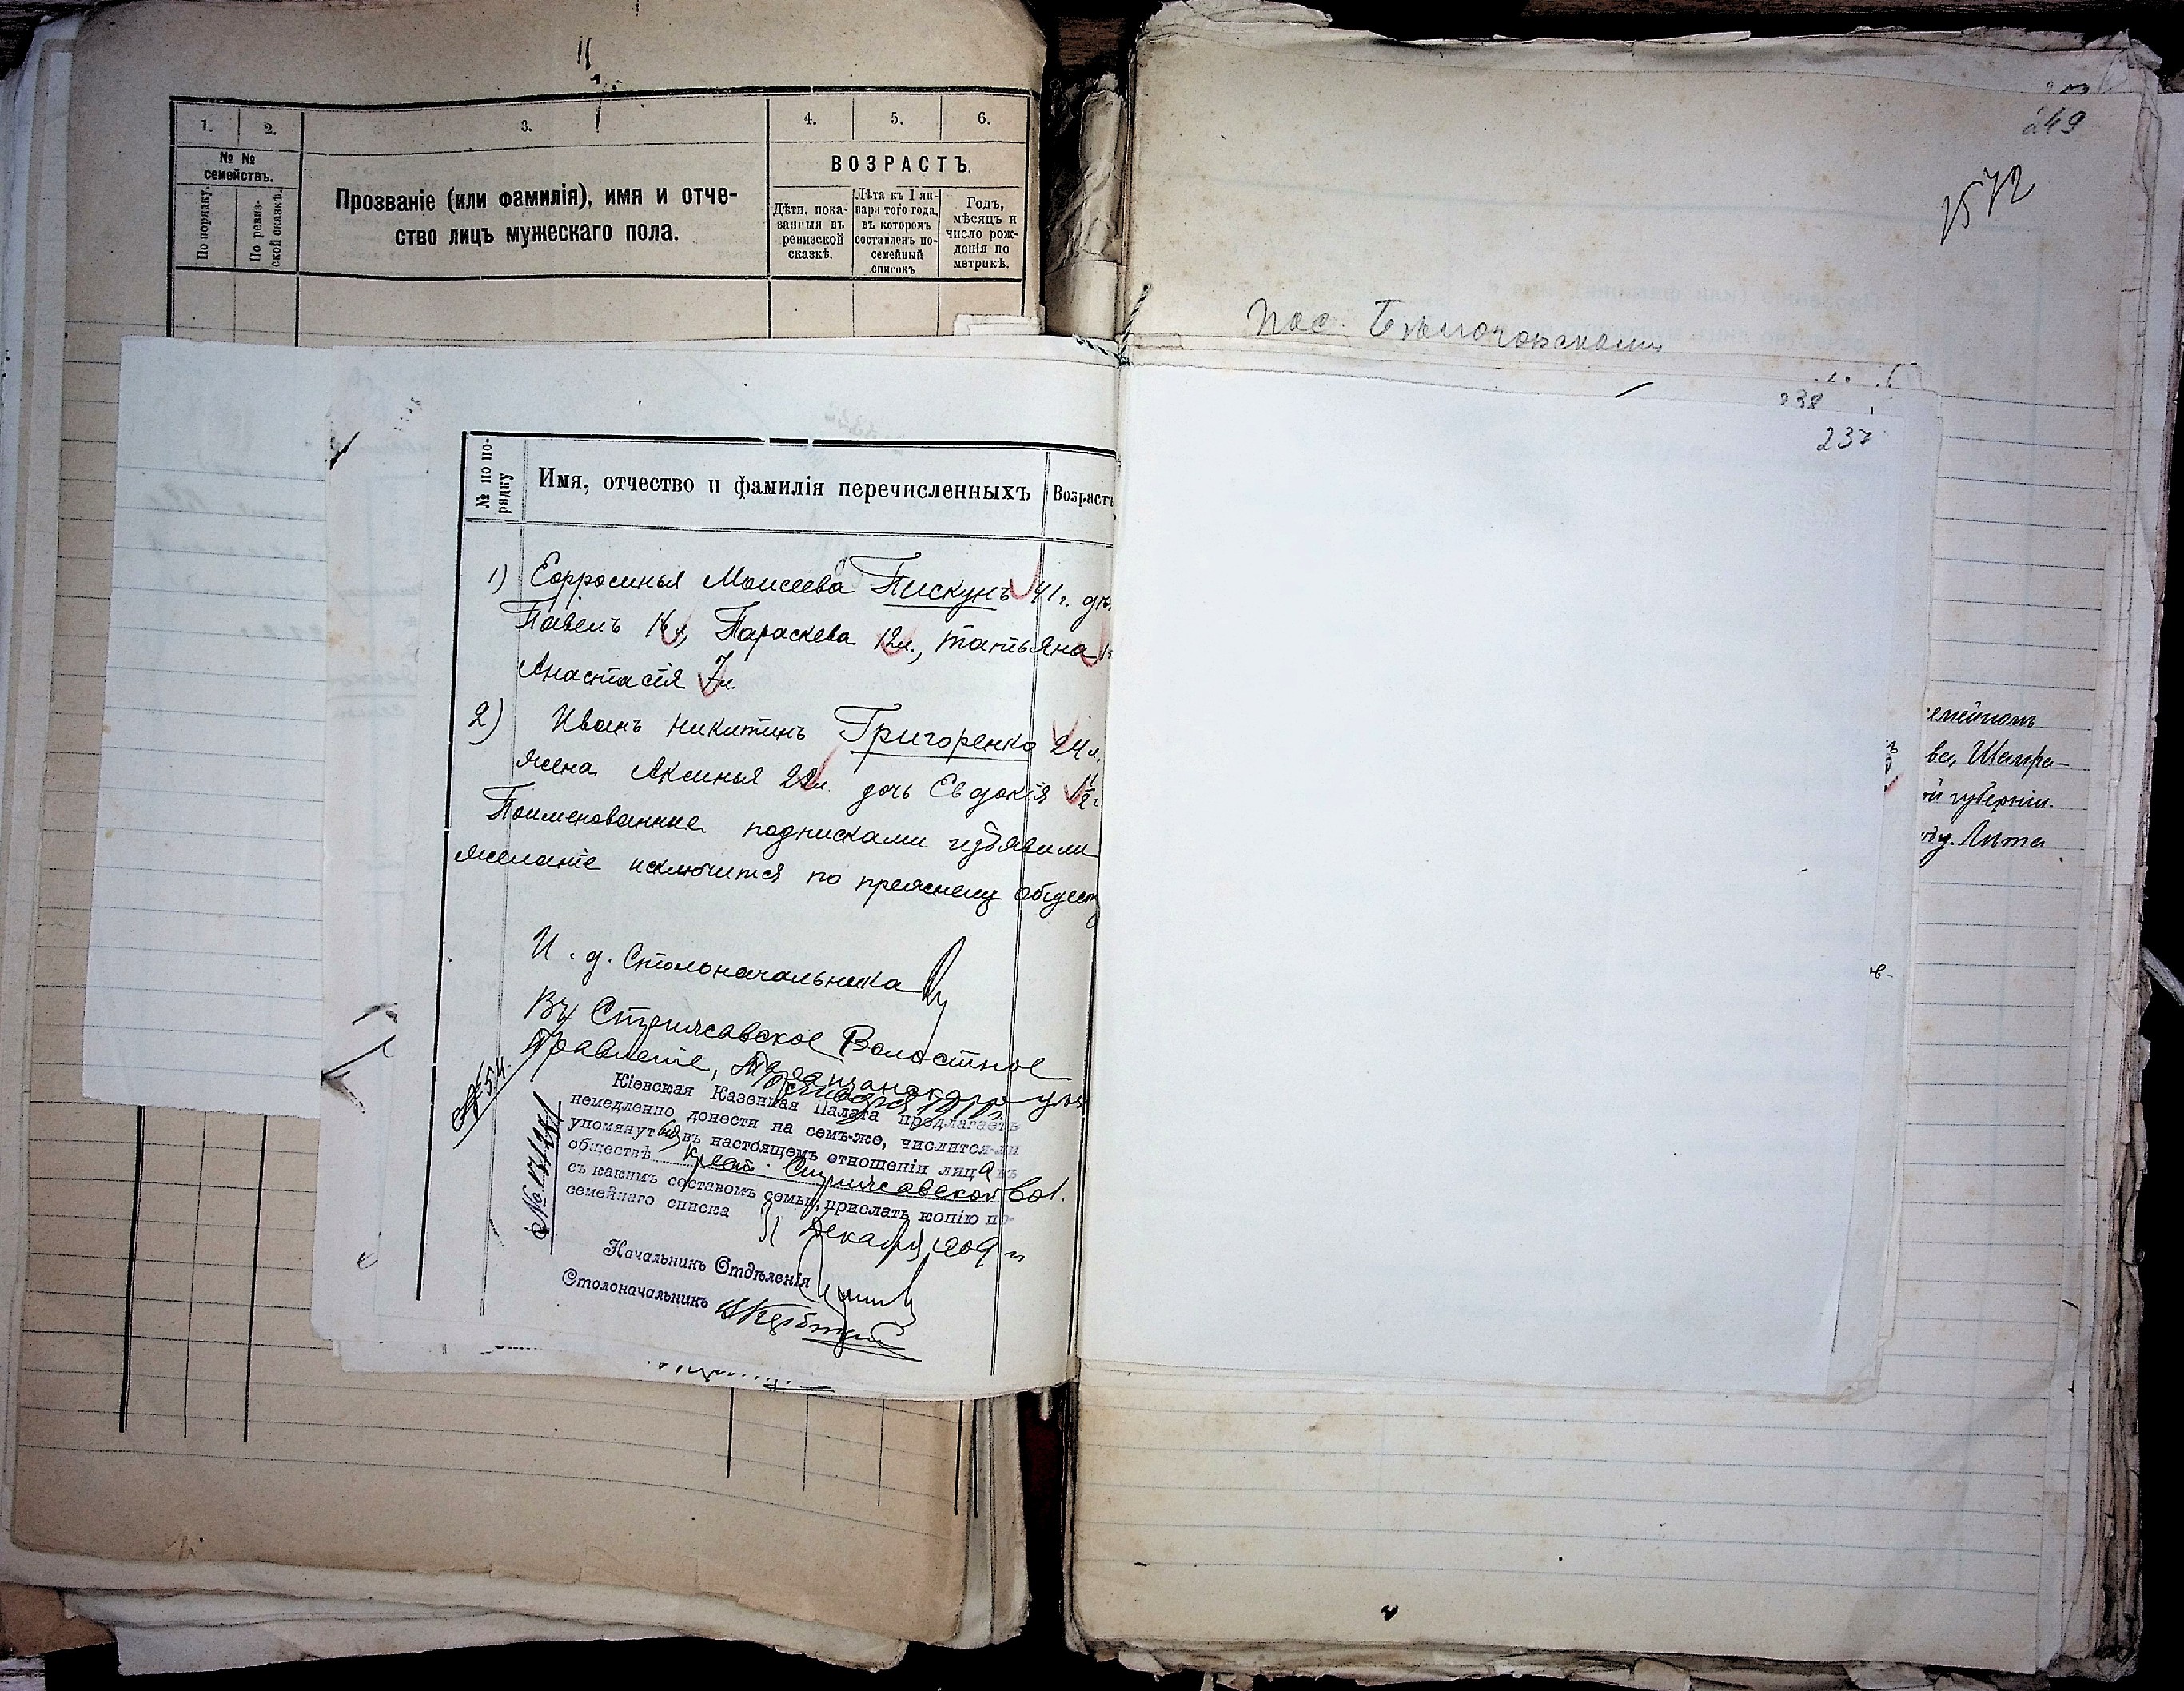 1. 2. 3. 4. 5. 6.
№ №
семействъ.
По порядку.
По ревиз-
ской сказкѣ.
Прозваніе (или фамилія), имя и отче-
ство лицъ мужескаго пола.
ВОЗРАСТЪ.
Дѣти, пока-
занныя въ
ревизской
сказкѣ.
Лѣта къ 1 ян-
варя того года,
въ которомъ
составленъ по-
семейный
списокъ
Годъ,
мѣсяцъ и
число рож-
денія по
метрикѣ.
№ по по-
рядку
Имя, отчество и фамилія перечисленныхъ
Возрастъ
1) Ефросинья Моисеева Пискунъ 41 г. дѣ.
Павелъ 16 л, Параскева 12 л., Татьяна
Анастасія 7 л.
2) Иванъ Никитинъ Григоренко 24 л.
жена Аксинья 22 л. дочь Евдокія 1½ г
Поименованные подписками изъявили
желаніе исключится по прежнему общест
И. д. Столоначальника
Въ Стрижавское Волостное
Правленіе, Таращанскаго уѣз
№ 54.
Кіевская Казенная Палата предлагаетъ
немедленно донести на семъ-же, числится-ли
упомянутыя въ настоящемъ отношеніи лица въ
обществѣ крест. Стрижавской вол.
съ какимъ составомъ семьи, прислать копію по-
семейнаго списка
31 Декабря 1909 г.
Начальникъ Отдѣленія
Столоначальникъ
249
1572
Пос.
238
237
емейномъ
ва, Шамра-
ой губерніи.
оду. Лѣта